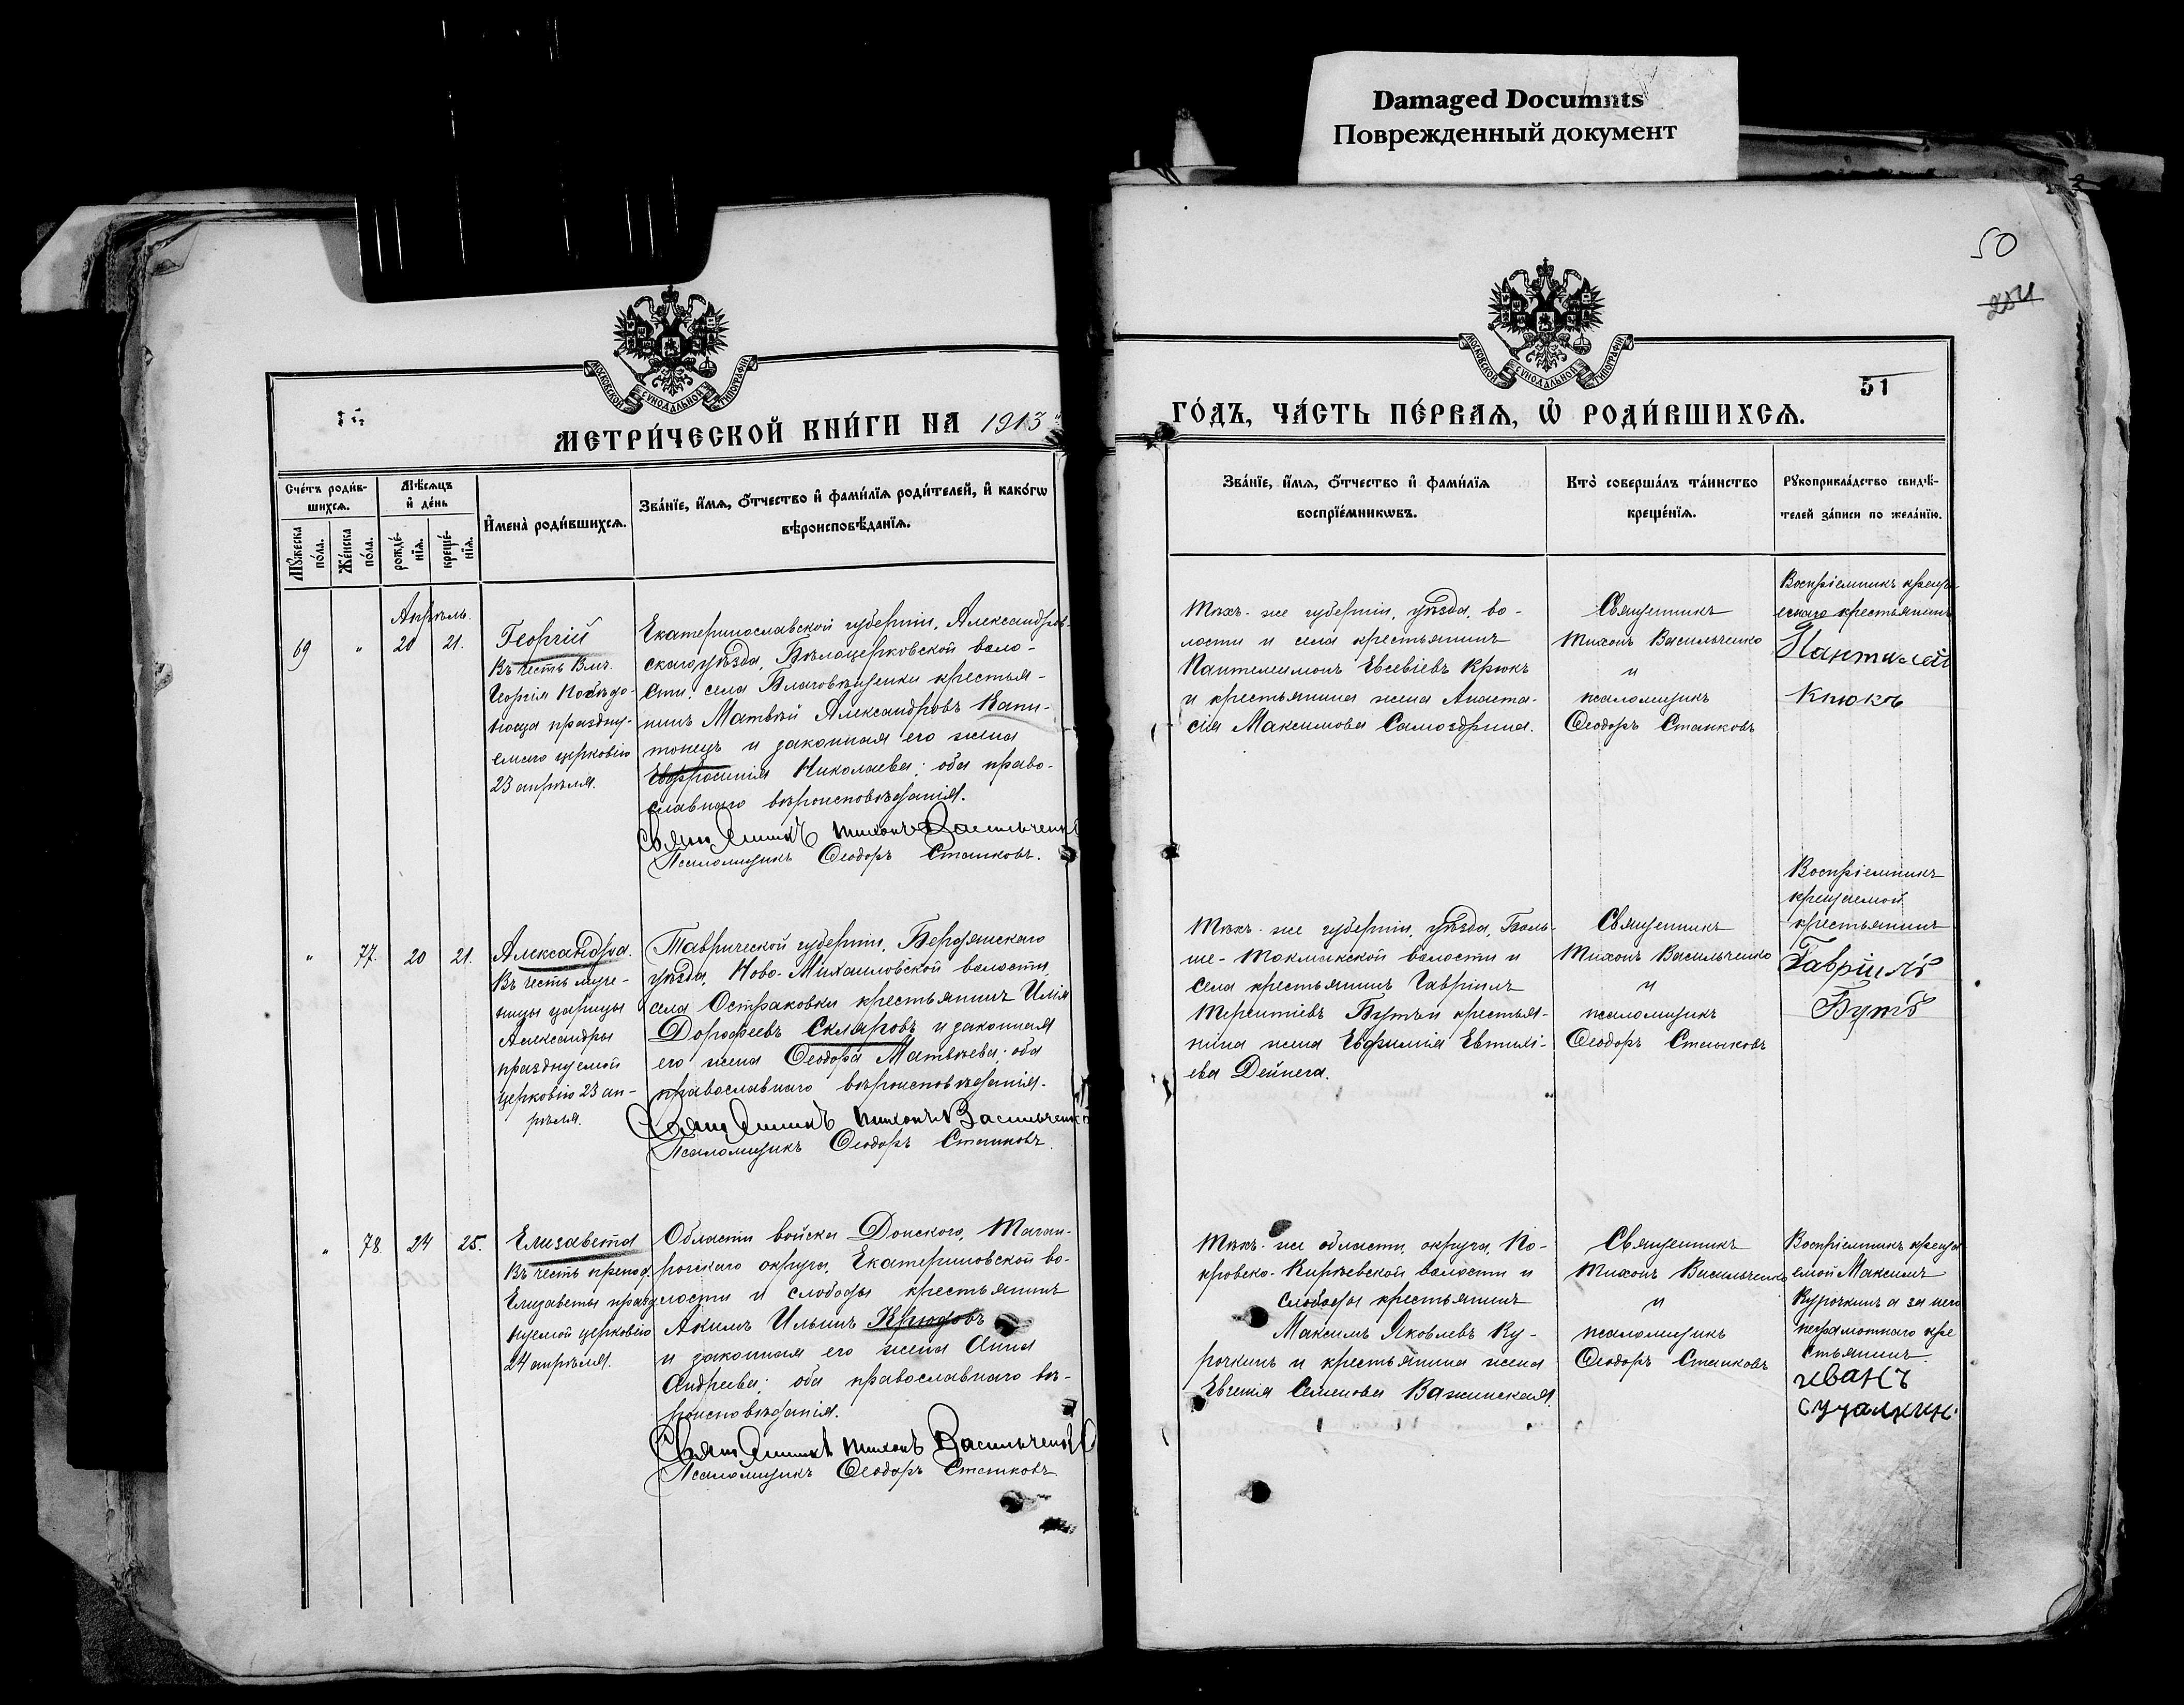 Damaged Documnts
Поврежденный документ
50
204
51
МОСКОВСКОЙ СѴНОДАЛЬНОЙ ТИПОГРАФІИ
МОСКОВСКОЙ СѴНОДАЛЬНОЙ ТИПОГРАФІИ
МЕТРИ́ЧЕСКОЙ КНИ́ГИ НА 1913
ГО́ДЪ, ЧА́СТЬ ПЕ́РВАѦ, Ѽ РОДИ́ВШИХСѦ.
Сче́тъ роди́в-
шихсѧ.
Мꙋжеска по́ла.
Же́нска по́ла.
Мѣ́сѧцъ
и҆ де́нь
рожде́-
нїѧ.
креще́-
нїѧ.
И҆мена̀ роди́вшихсѧ.
Зва́нїе, и҆́мѧ, ѻ҆́тчество и҆ фами́лїѧ роди́телей, и҆ како́гѡ
вѣроисповѣ́данїѧ.
Зва́нїе, и҆́мѧ, ѻ҆́тчество и҆ фами́лїѧ
воспрїе́мникѡвъ.
Кто̀ соверша́лъ та́инство
креще́нїѧ.
Рꙋкоприкла́дство свидѣ́-
телей за́писи по жела́нїю.
Апрѣль.
69 " 20 21.
Георгій
Въ честь Влч.
Георгія Побѣдо-
носца праздну-
емаго церковію
23 апрѣля.
Екатеринославской губерніи, Александров-
скаго уѣзда, Бѣлоцерковской воло-
сти, села Благовѣщенки крестья-
нинъ Матвѣй Александровъ Капи-
тонецъ и законная его жена
Евфросинія Николаева; оба право-
славнаго вѣроисповѣданія.
Священникъ Тихонъ Васильченко
Псаломщикъ Ѳеодоръ Станковъ.
Тѣхъ-же губерніи, уѣзда, во-
лости и села крестьянинъ
Пантелеимонъ Евсевіевъ Крюкъ
и крестьянина жена Анаста-
сія Максимова Самоздрина.
Священникъ
Тихонъ Васильченко
и
псаломщикъ
Ѳеодоръ Станковъ
Воспріемникъ креща-
емаго крестьянинъ
Пантилей
Крюкъ
" 77. 20 21.
Александра.
Въ честь муче-
ницы царицы
Александры
празднуемой
церковію 23 ап-
рѣля.
Таврической губерніи, Бердянскаго
уѣзда, Ново-Михайловской волости,
села Остраковки крестьянинъ Илія
Дороѳеевъ Скляровъ и законная
его жена Ѳеодора Матвѣева; оба
православнаго вѣроисповѣданія.
Священникъ Тихонъ Васильченко
Псаломщикъ Ѳеодоръ Станковъ.
Тѣхъ-же губерніи, уѣзда, Боль-
ше-Токмакской волости и
села крестьянинъ Гавріилъ
Терентіевъ Бутъ и крестья-
нина жена Евфимія Евтихі-
ева Дейнега.
Священникъ
Тихонъ Васильченко
и
псаломщикъ
Ѳеодоръ Станковъ
Воспріемникъ
крещаемой
крестьянинъ
Гавріилъ
Бутъ
" 78. 24 25.
Елизавета
Въ честь препод.
Елизаветы празд-
нуемой церковію
24 апрѣля.
Области войска Донского, Таган-
рогскаго округа, Екатериновской во-
лости и слободы крестьянинъ
Акимъ Ильинъ Крюдовъ
и законная его жена Анна
Андреева; оба православнаго вѣ-
роисповѣданія.
Священникъ Тихонъ Васильченко
Псаломщикъ Ѳеодоръ Станковъ
Тѣхъ-же области, округа, По-
кровско-Киреевской волости и
слободы крестьянинъ
Максимъ Яковлевъ Ку-
рочкинъ и крестьянина жена
Евгенія Семенова Важинская.
Священникъ
Тихонъ Васильченко
и
псаломщикъ
Ѳеодоръ Станковъ
Воспріемникъ креща-
емой Максимъ
Курочкинъ а за него
неграмотнаго кре
стьянинъ
иванъ